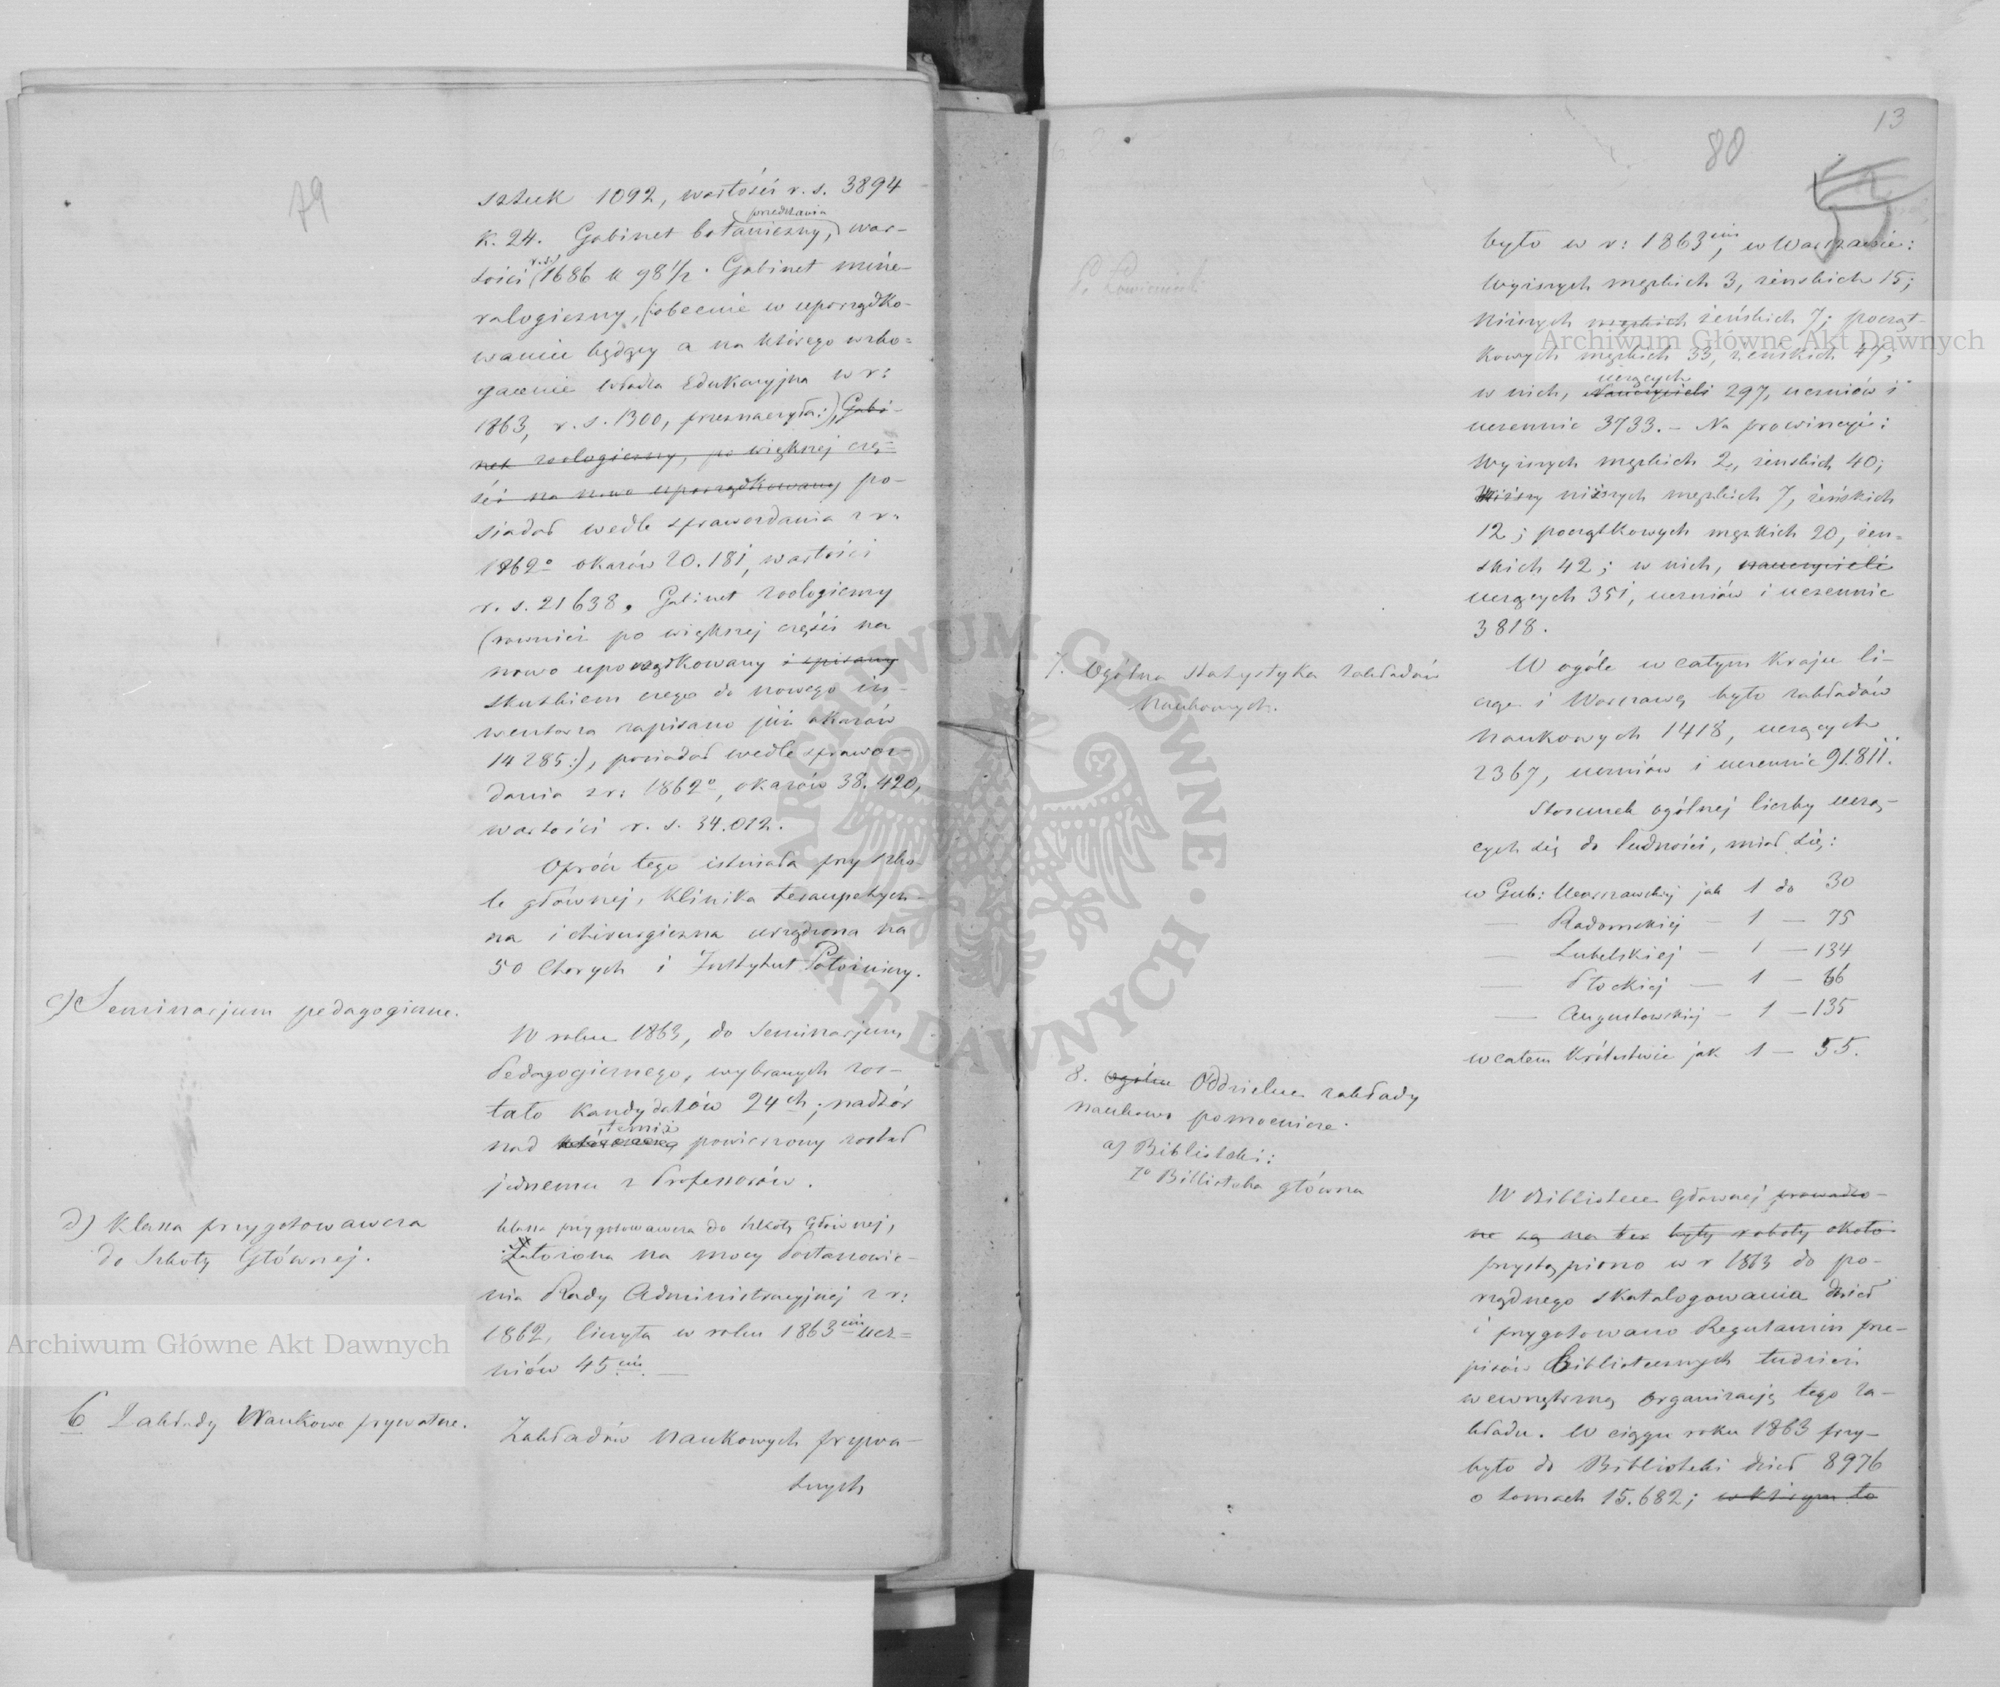 79
sztuk 1092, wartości r. s. 3894
przedstawia
K. 24. Gabinet botaniczny, war-
r. s.
tości 1686 k 98 1/2. Gabinet mine-
ralogiczny, (: obecnie w uporządko-
waniu będący a na którego wzbo-
gacenie Władza Edukacyjna w r:
1863, r. s. 1300, przeznaczyła:), Gabi-
net zoologiczny, po większej czę-
ści na nowo uporządkowany po-
siadał wedle sprawozdania z r:
1862o okazów 20.181, wartości
r. s. 21638. Gabinet zoologiczny
(również po większej części na
nowo uporządkowany i spisany
skutkiem czego do nowego in-
wentarza zapisano już okazów
14285:), posiadał wedle sprawoz-
dania z r: 1862o, okazów 38.420,
wartości r. s. 34.012.
Oprócz tego istniała przy Szko-
le głównej, Klinika terapeutycz-
na i chirurgiczna urządzona na
50 Chorych i Instytut Położniczy.
c) Seminarjum pedagogiczne.
W roku 1863, do Seminarjum
Pedagogicznego, wybranych zos-
tało Kandydatów 24ch; nadzór
temiż
nad powierzony został
jednemu z Professorów.
d) Klassa przygotowawcza
do Szkoły Głównej.
Klassa przygotowawcza do Szkoły Głównej,
Założona na mocy Postanowie-
nia Rady Administracyjnej z r:
1862, liczyła w roku 1863im ucz-
niów 45ciu. —
6 Zakłady Naukowe prywatne.
Zakładów naukowych prywa-
tnych
13
80
było w r: 1863im, w Warszawie:
Wyższych męzkich 3, żeńskich 15;
Niższych męzkich żeńskich 7; począt-
kowych męzkich 33, żeńskich 47;
uczących
w nich, Nauczycieli 297, uczniów i
uczennic 3733. — Na prowincyi:
Wyższych męzkich 2, żenskich 40;
Niższy niższych męzkich 7, żeńskich
12; początkowych męzkich 20, żen-
skich 42; w nich, nauczycieli
uczących 351, uczniów i uczennic
3818.
7. Ogólna Statystyka Zakładów
Naukowych.
W ogóle w całym Kraju li-
cząc i Warszawę było zakładów
Naukowych 1418, uczących
2367, uczniów i uczennic 91.811.
Stosunek ogólnej liczby uczą-
cych się do ludności, miał się:
w Gub: Warszawskiej jak 1 do 30
— Radomskiej — 1 — 75
— Lubelskiej — 1 — 134
— Płockiej — 1 — 66
— Augustowskiej — 1 — 135
w całem Królestwie jak 1 — 55.
8. Ogólne Oddzielne zakłady
naukowe pomocnicze.
a) Biblioteki:
1o Biblioteka główna
W Bibliotece Głównej prowadzo-
ne są na ten były roboty około
przystąpiono w r 1863 do po-
rządnego skatalogowania dzieł
i przygotowano Regulamin prze-
pisów Bibliotecznych tudzież
wewnętrzną organizację tego za-
kładu. W ciągu roku 1863 przy-
było do Biblioteki dzieł 8976
o tomach 15.682; w którym to
ARCHIWUM GŁÓWNE · AKT DAWNYCH ·
Archiwum Główne Akt Dawnych
Archiwum Główne Akt Dawnych